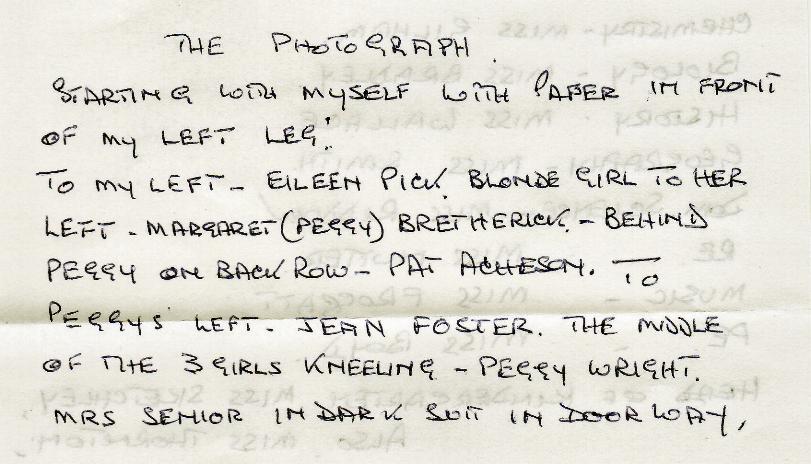 THE PHOTOGRAPH.
STARTING WITH MYSELF WITH PAPER IN FRONT
OF MY LEFT LEG!
TO MY LEFT - EILEEN PICK. BLONDE GIRL TO HER
LEFT - MARGARET (PEGGY) BRETHERICK. - BEHIND
PEGGY ON BACK ROW - PAT ACHESON. TO
PEGGYS LEFT - JEAN FOSTER. THE MIDDLE
OF THE 3 GIRLS KNEELING - PEGGY WRIGHT.
MRS SENIOR IN DARK SUIT IN DOORWAY,